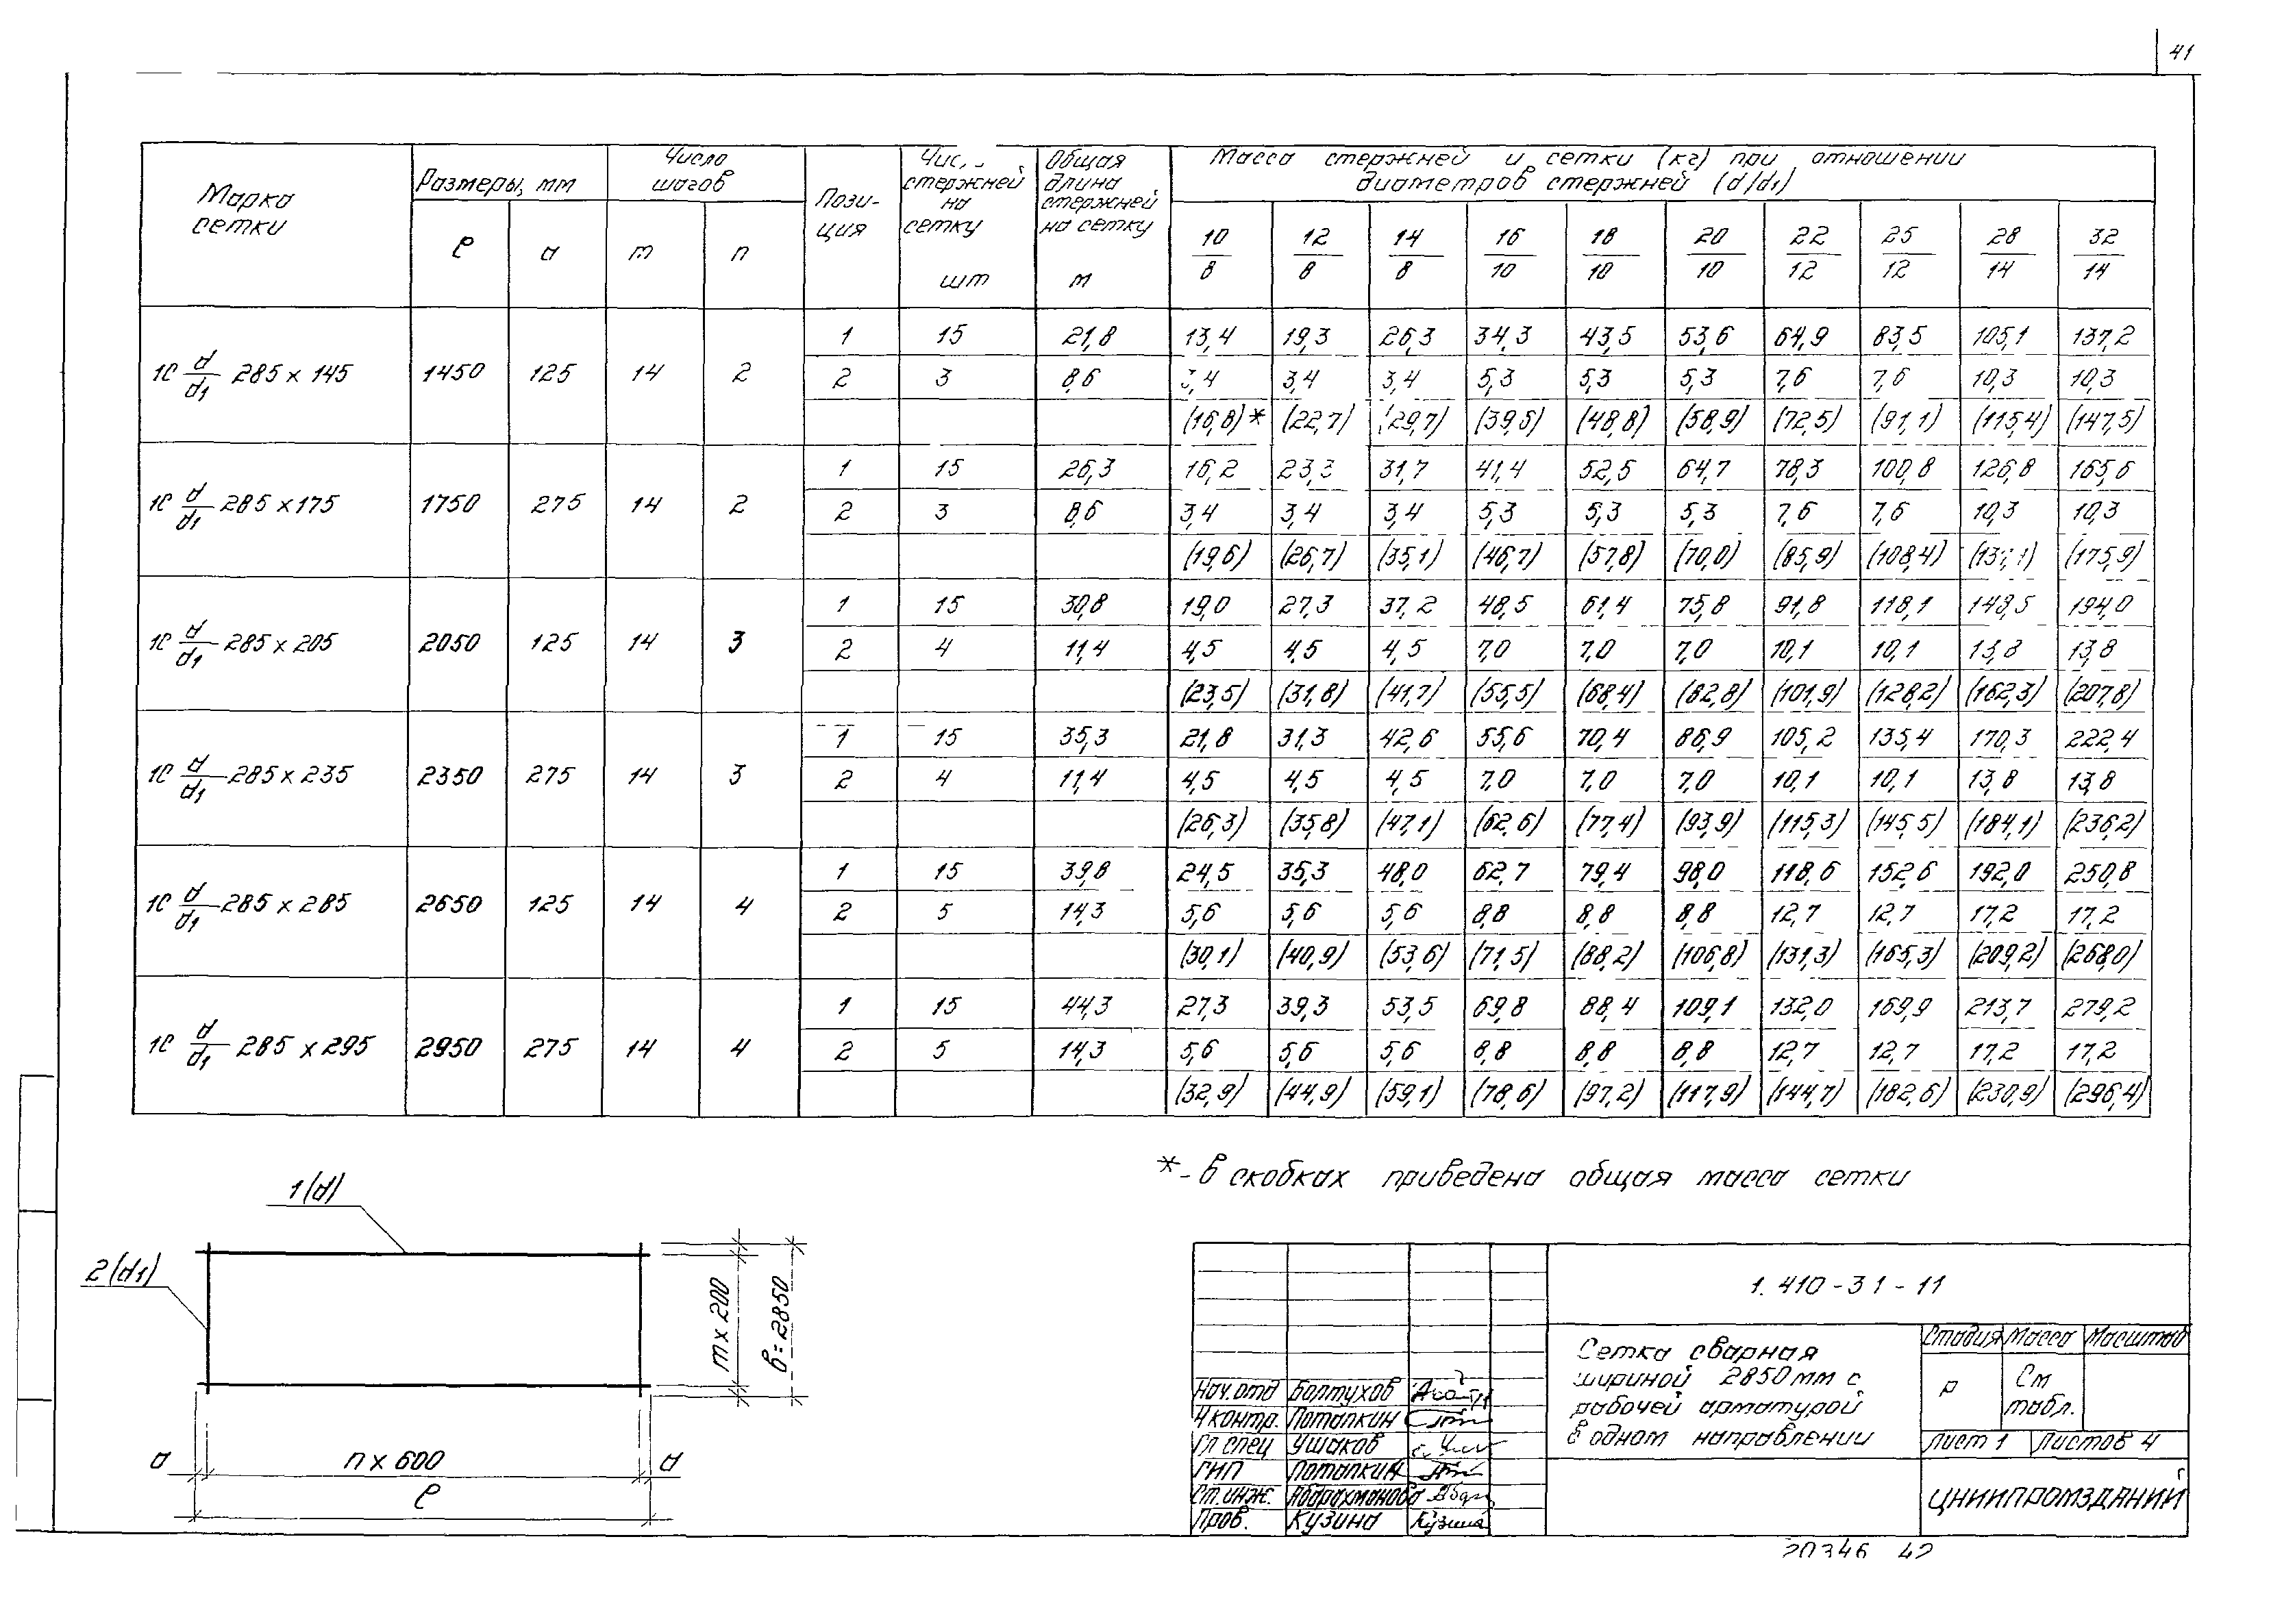 41
Марка сетки | Размеры, мм | Число шагов | Пози-ция | Чис. стержней на сетку шт | Общая длина стержней на сетку м | Масса стержней и сетки (кг) при отношении диаметров стержней (d/d1)
ℓ | a | m | n | 10/8 | 12/8 | 14/8 | 16/10 | 18/10 | 20/10 | 22/12 | 25/12 | 28/14 | 32/14
1С d/d1 285 х 145 | 1450 | 125 | 14 | 2
1 | 15 | 21,8 | 13,4 | 19,3 | 26,3 | 34,3 | 43,5 | 53,6 | 64,9 | 83,5 | 105,1 | 137,2
2 | 3 | 8,6 | 3,4 | 3,4 | 3,4 | 5,3 | 5,3 | 5,3 | 7,6 | 7,6 | 10,3 | 10,3
(16,8)* | (22,7) | (29,7) | (39,6) | (48,8) | (58,9) | (72,5) | (91,1) | (115,4) | (147,5)
1С d/d1 285 х 175 | 1750 | 275 | 14 | 2
1 | 15 | 26,3 | 16,2 | 23,3 | 31,7 | 41,4 | 52,5 | 64,7 | 78,3 | 100,8 | 126,8 | 165,6
2 | 3 | 8,6 | 3,4 | 3,4 | 3,4 | 5,3 | 5,3 | 5,3 | 7,6 | 7,6 | 10,3 | 10,3
(19,6) | (26,7) | (35,1) | (46,7) | (57,8) | (70,0) | (85,9) | (108,4) | (175,9)
1С d/d1 285 х 205 | 2050 | 125 | 14 | 3
1 | 15 | 30,8 | 19,0 | 27,3 | 37,2 | 48,5 | 61,4 | 75,8 | 91,8 | 118,1 | 148,5 | 194,0
2 | 4 | 11,4 | 4,5 | 4,5 | 4,5 | 7,0 | 7,0 | 7,0 | 10,1 | 10,1 | 13,8 | 13,8
(23,5) | (31,8) | (41,7) | (55,5) | (68,4) | (82,8) | (101,9) | (128,2) | (162,3) | (207,8)
1С d/d1 285 х 235 | 2350 | 275 | 14 | 3
1 | 15 | 35,3 | 21,8 | 31,3 | 42,6 | 55,6 | 70,4 | 86,9 | 105,2 | 135,4 | 170,3 | 222,4
2 | 4 | 11,4 | 4,5 | 4,5 | 4,5 | 7,0 | 7,0 | 7,0 | 10,1 | 10,1 | 13,8 | 13,8
(26,3) | (35,8) | (47,1) | (62,6) | (77,4) | (93,9) | (115,3) | (145,5) | (184,1) | (236,2)
1С d/d1 285 х 285 | 2650 | 125 | 14 | 4
1 | 15 | 39,8 | 24,5 | 35,3 | 48,0 | 62,7 | 79,4 | 98,0 | 118,6 | 152,6 | 192,0 | 250,8
2 | 5 | 14,3 | 5,6 | 5,6 | 5,6 | 8,8 | 8,8 | 8,8 | 12,7 | 12,7 | 17,2 | 17,2
(30,1) | (40,9) | (53,6) | (71,5) | (88,2) | (106,8) | (131,3) | (165,3) | (209,2) | (268,0)
1С d/d1 285 х 295 | 2950 | 275 | 14 | 4
1 | 15 | 44,3 | 27,3 | 39,3 | 53,5 | 69,8 | 88,4 | 109,1 | 132,0 | 169,9 | 213,7 | 279,2
2 | 5 | 14,3 | 5,6 | 5,6 | 5,6 | 8,8 | 8,8 | 8,8 | 12,7 | 12,7 | 17,2 | 17,2
(32,9) | (44,9) | (59,1) | (78,6) | (97,2) | (117,9) | (144,7) | (182,6) | (230,9) | (296,4)
*- в скобках приведена общая масса сетки
1(d)
2(d1)
m x 200
в=2850
a n x 600 a
ℓ
1. 410-3 1-11
Сетка сварная
шириной 2850 мм с
рабочей арматурой
в одном направлении
Стадия Масса Масштаб
Р См табл.
Лист 1 Листов 4
ЦНИИПРОМЗДАНИЙ
Нач. отд Болтухов
Н контр. Потапкин
Гл спец Ушаков
ГИП Потапкин
Ст. инж. Абдрахманова
Пров. Кузина Кузина
20346 42